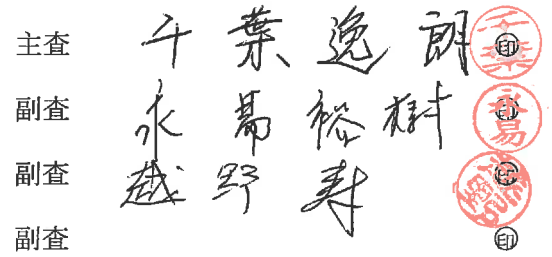 主査 千葉逸朗 印
副査 永易裕樹 印
副査 越野寿 印
副査 印